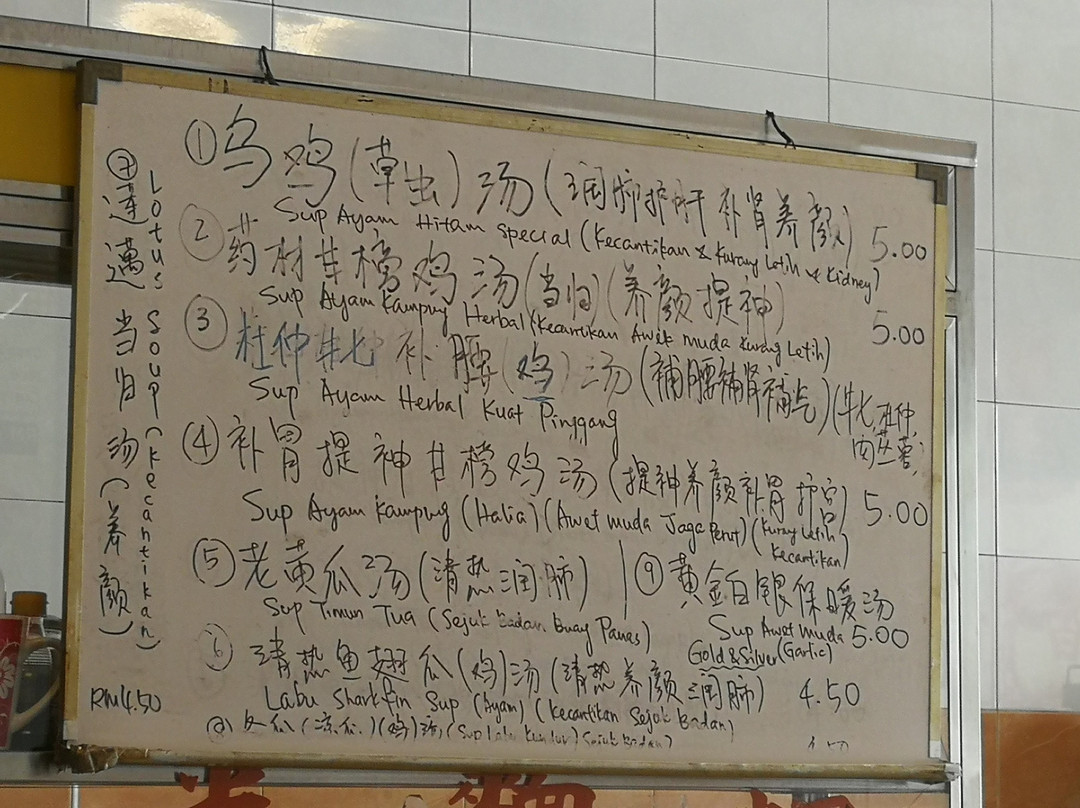 ① 乌鸡(草虫)汤(润肺护肝补肾养颜) 5.00
Sup Ayam Hitam special (Kecantikan & Kurang Letih & Kidney)
② 药材甘榜鸡汤(当归)(养颜提神) 5.00
Sup Ayam Kampung Herbal (Kecantikan Awet muda Kurang Letih)
③ 杜仲牛七补腰(鸡)汤(補腰補肾補气)(牛七,杜仲,
Sup Ayam Herbal Kuat Pinggang
④ 补胃提神甘榜鸡汤(提神养颜补胃护宫) 5.00
Sup Ayam Kampung (Halia) (Awet muda Jaga Perut) (Kurang Letih Kecantikan)
⑤ 老黄瓜汤(清热润肺)
Sup Timun Tua (Sejuk Badan Buang Panas)
⑨ 黄金白银保暖汤
Sup Awet Muda 5.00
Gold & Silver (Garlic)
⑥ 清热鱼翅瓜(鸡)汤(清热养颜润肺) 4.50
Labu Sharkfin Sup (Ayam) (Kecantikan Sejuk Badan)
冬瓜(凉瓜)(鸡)汤 (Sup Labu Kundur) (Sejuk Badan)
⑦ 莲藕当归汤(养颜)
Lotus Soup (Kecantikan)
RM4.50